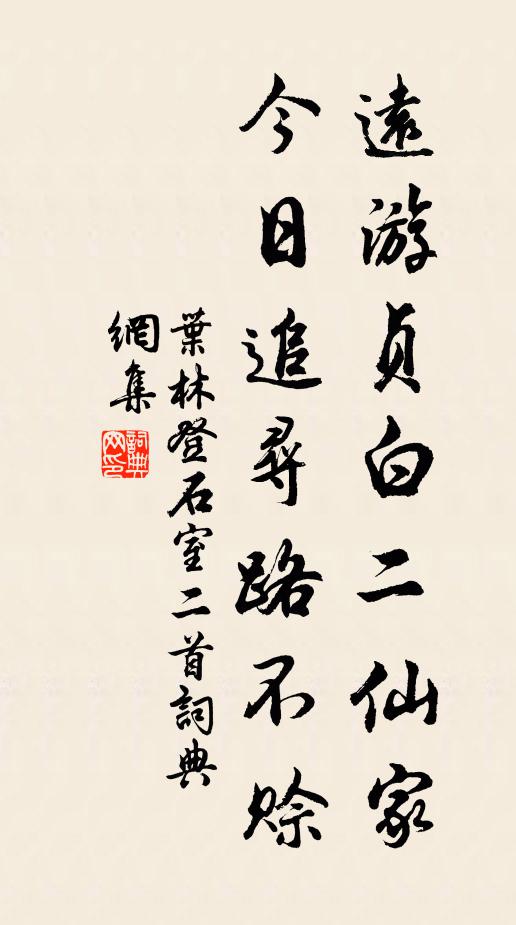 遠游貞白二仙家
今日追尋路不賒
葉林登石室二首詞典
網集
詞典网印